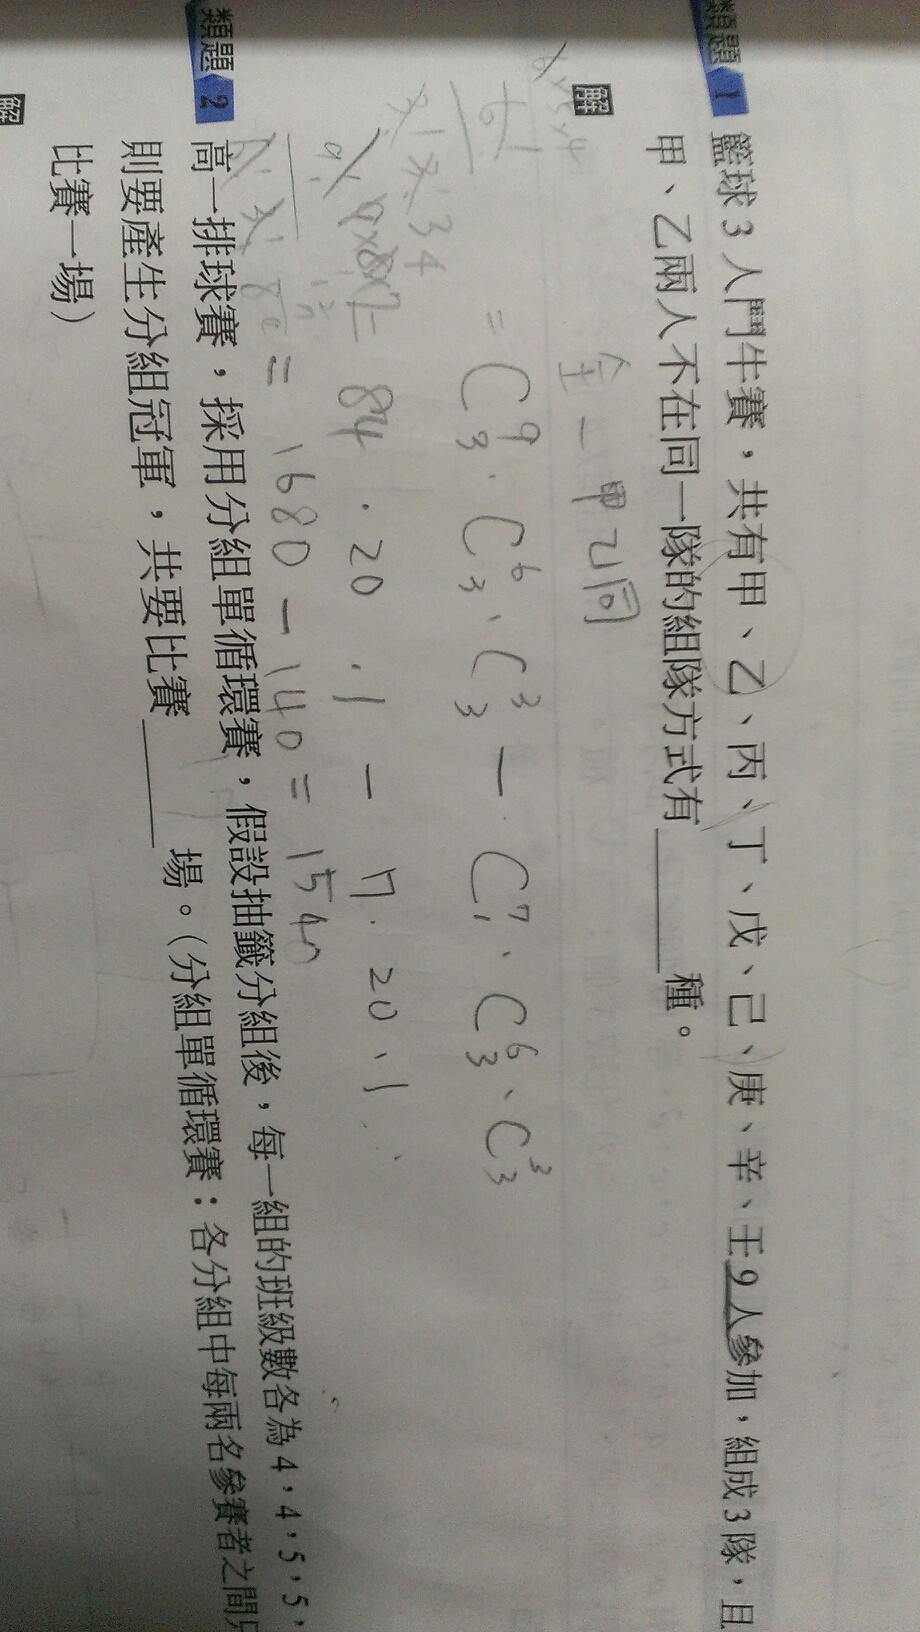 類題 1
籃球3人鬥牛賽，共有甲、乙、丙、丁、戊、己、庚、辛、壬9人參加，組成3隊，且
甲、乙兩人不在同一隊的組隊方式有______種。
解
全－甲乙同
6×5×4
= C⁹₃・C⁶₃・C³₃ － C⁷₁・C⁶₃・C³₃
84・20・1 － 7・20・1
= 1680 － 140 = 1540
類題 2
高一排球賽，採用分組單循環賽，假設抽籤分組後，每一組的班級數各為4，4，5，5，
則要產生分組冠軍，共要比賽______場。（分組單循環賽：各分組中每兩名參賽者之間只
比賽一場）
解